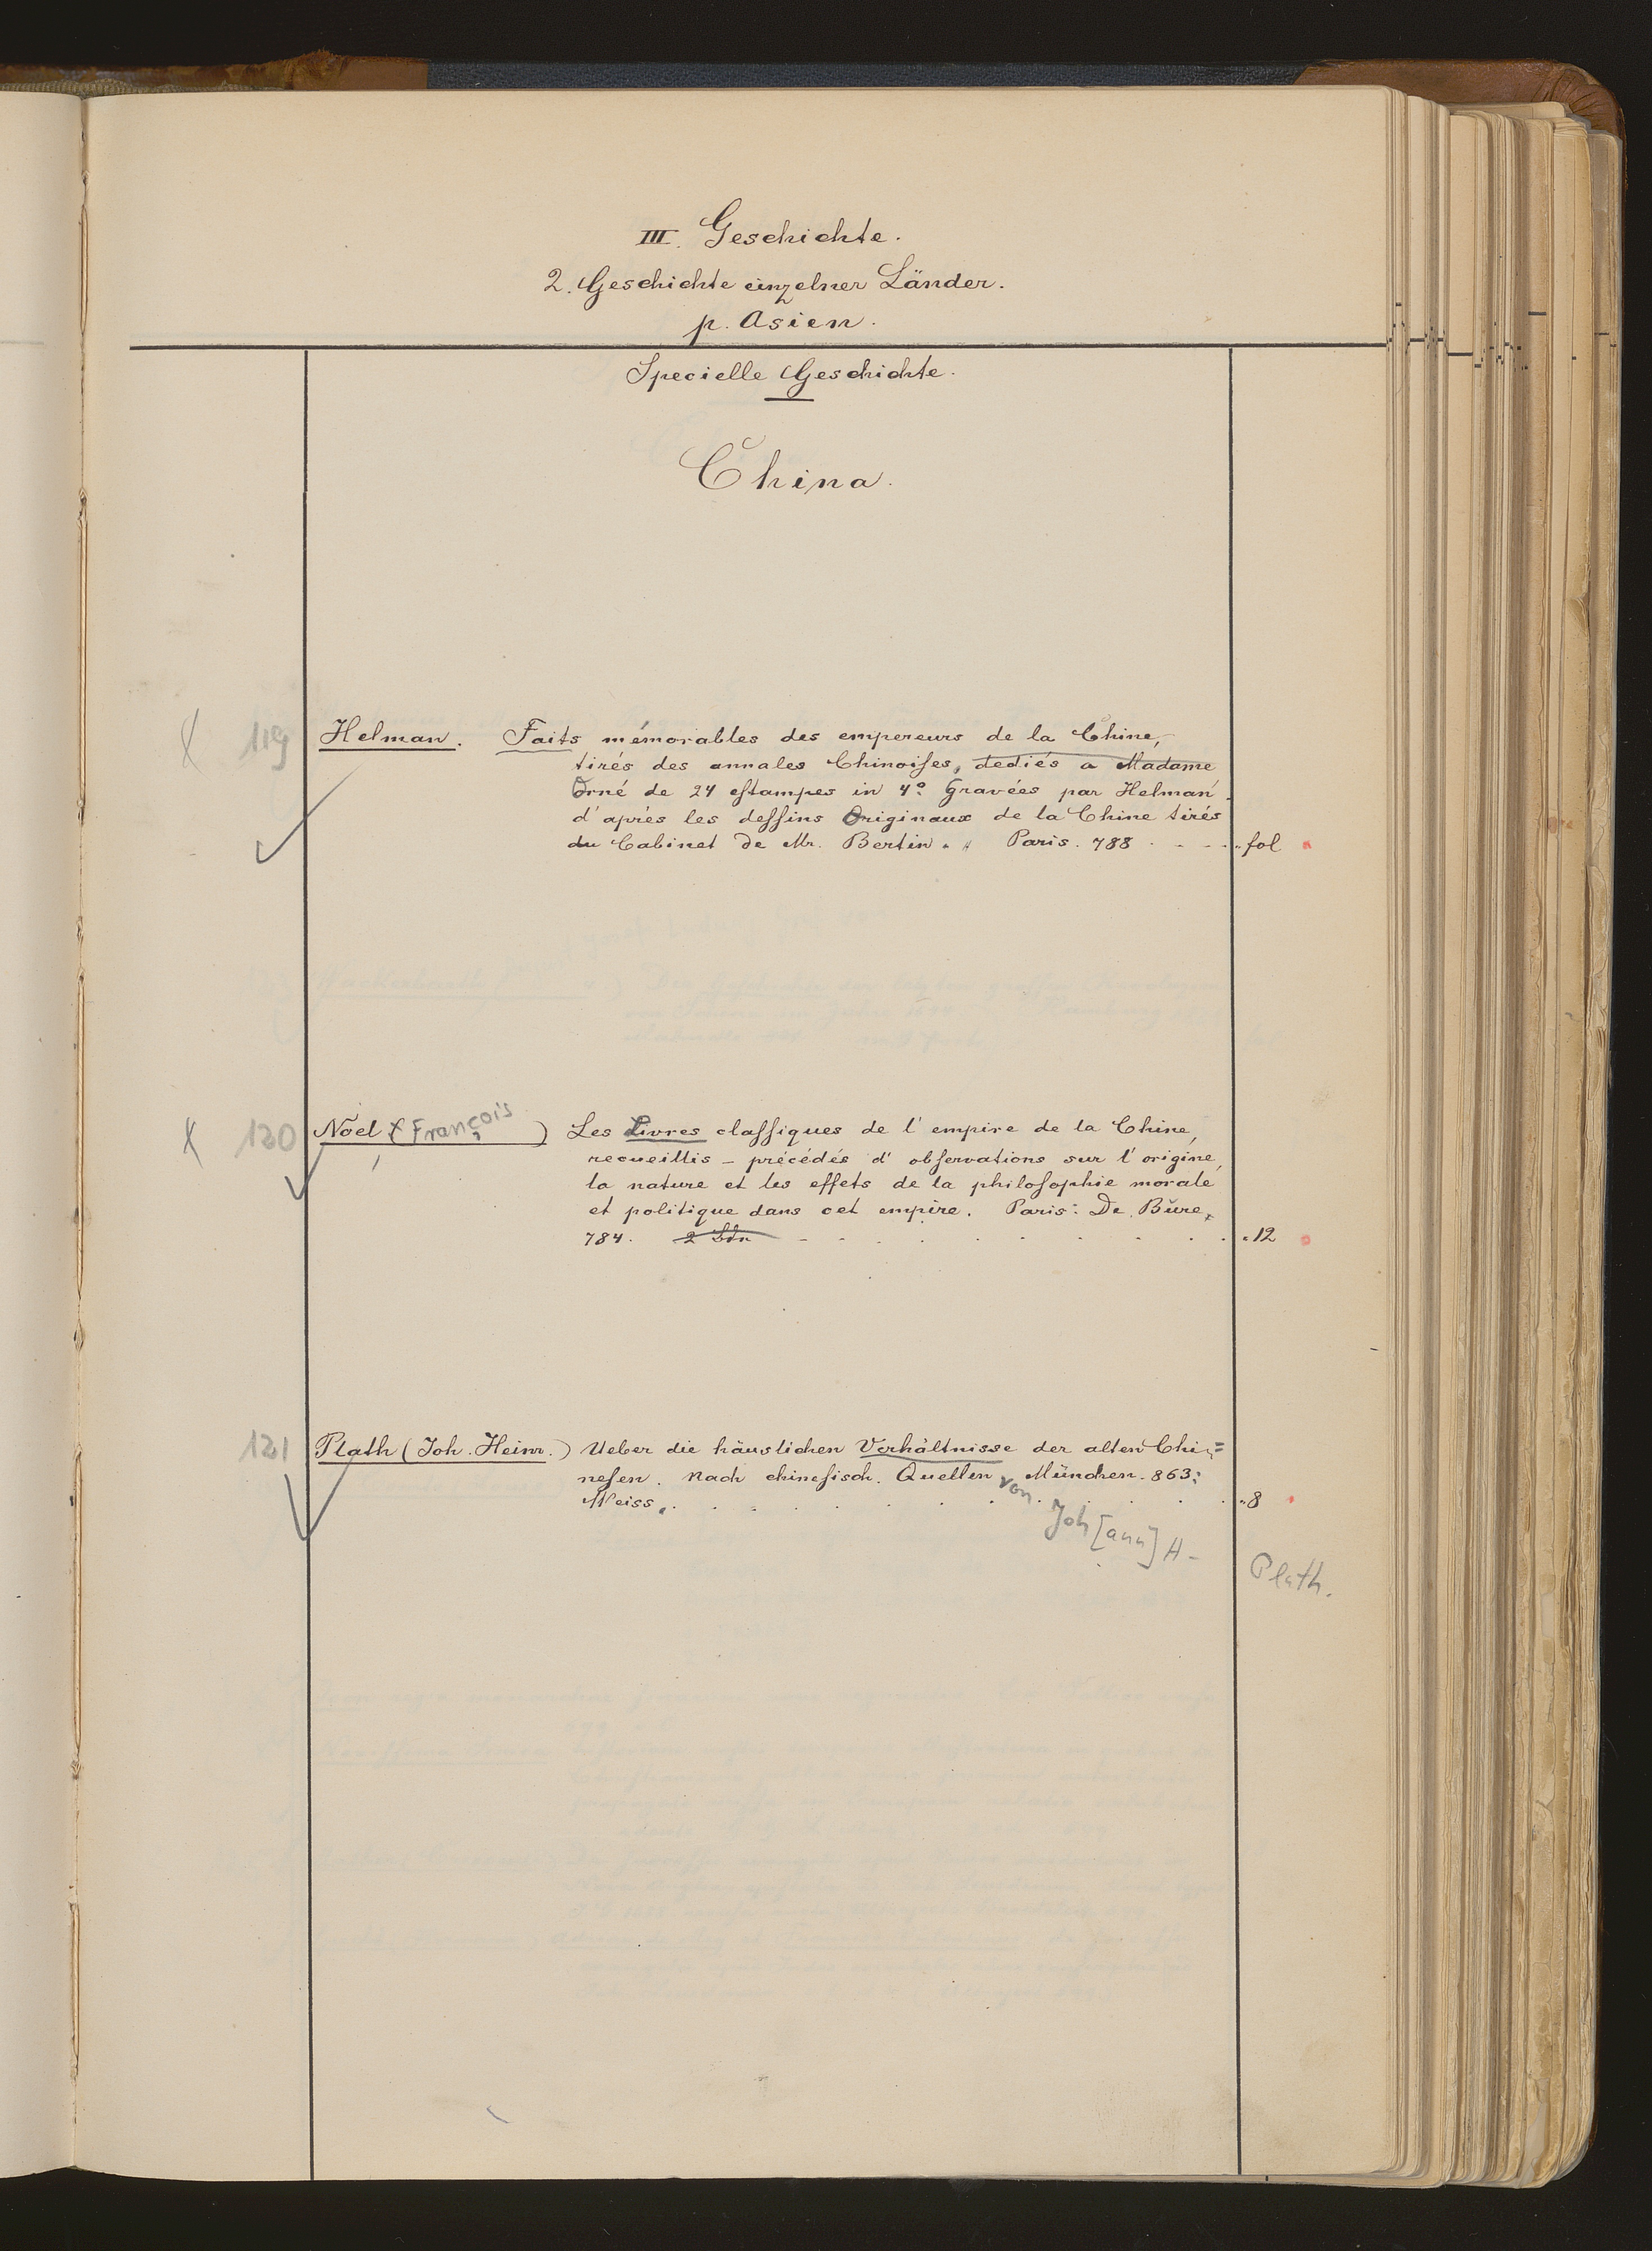 III. Geschichte.
2. Geschichte einzelner Länder.
p. Asien.
Specielle Geschichte.
China.
119 Helman. Faits mémorables des empereurs de la Chine,
tirés des annales Chinoises, dediés a Madame
Orné de 24 estampes in 4º. Gravées par Helman
d'aprés les dessins Originaux de la Chine tirés
du Cabinet de Mr. Bertin. Paris. 788 . . . . fol
120 Nöel (François) Les Livres classiques de l'empire de la Chine,
recueillis – précédés d'observations sur l'origine,
la nature et les effets de la philosophie morale
et politique dans cet empire. Paris: De Bŭre,
784. 2 Bdn . . . . . . . . 12
121 Plath (Joh. Heinr.) Ueber die häuslichen Verhältnisse der alten Chi=
nesen. Nach chinesisch. Quellen von München. 863:
Weiss. . . . . . . . . . 8
Joh[ann] H- Plath.